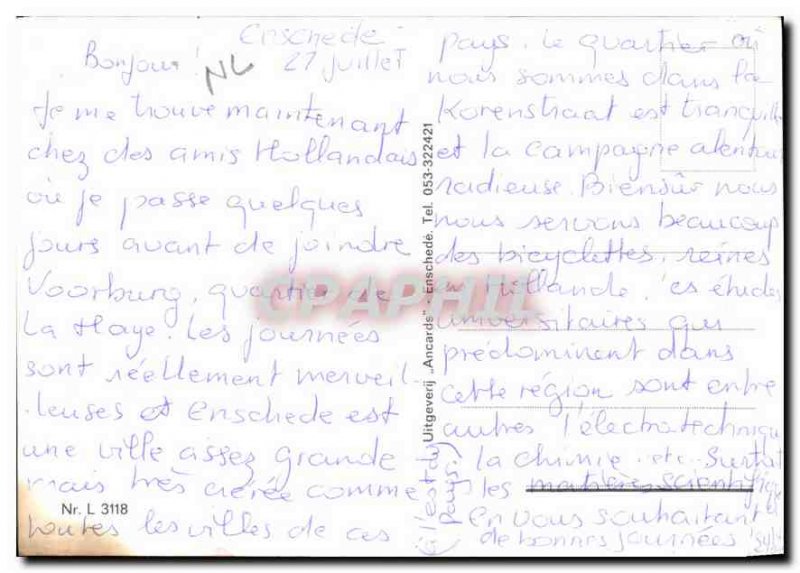 Enschede
27 juillet
Bonjour!
NL
Je me trouve maintenant
chez des amis Hollandais
où je passe quelques
jours avant de joindre
Voorburg, quartier de
La Haye. Les journées
sont réellement merveil-
leuses et Enschede est
une ville assez grande
mais très aérée comme
toutes les villes de ces
Nr. L 3118
(à l'est du
pays.)
Uitgeverij „Ancards" - Enschede. Tel. 053-322421
pays. Le quartier où
nous sommes dans la
Korenstraat est tranquille
et la campagne alentour
radieuse. Biensûr nous
nous servons beaucoup
des bicyclettes, reines
en Hollande. Les études
universitaires qui
prédominent dans
cette région sont entre
autres l'électrotechnique
la chimie etc. Surtout
les matières scientifiques
En vous souhaitant
de bonnes journées
CPAPHIL